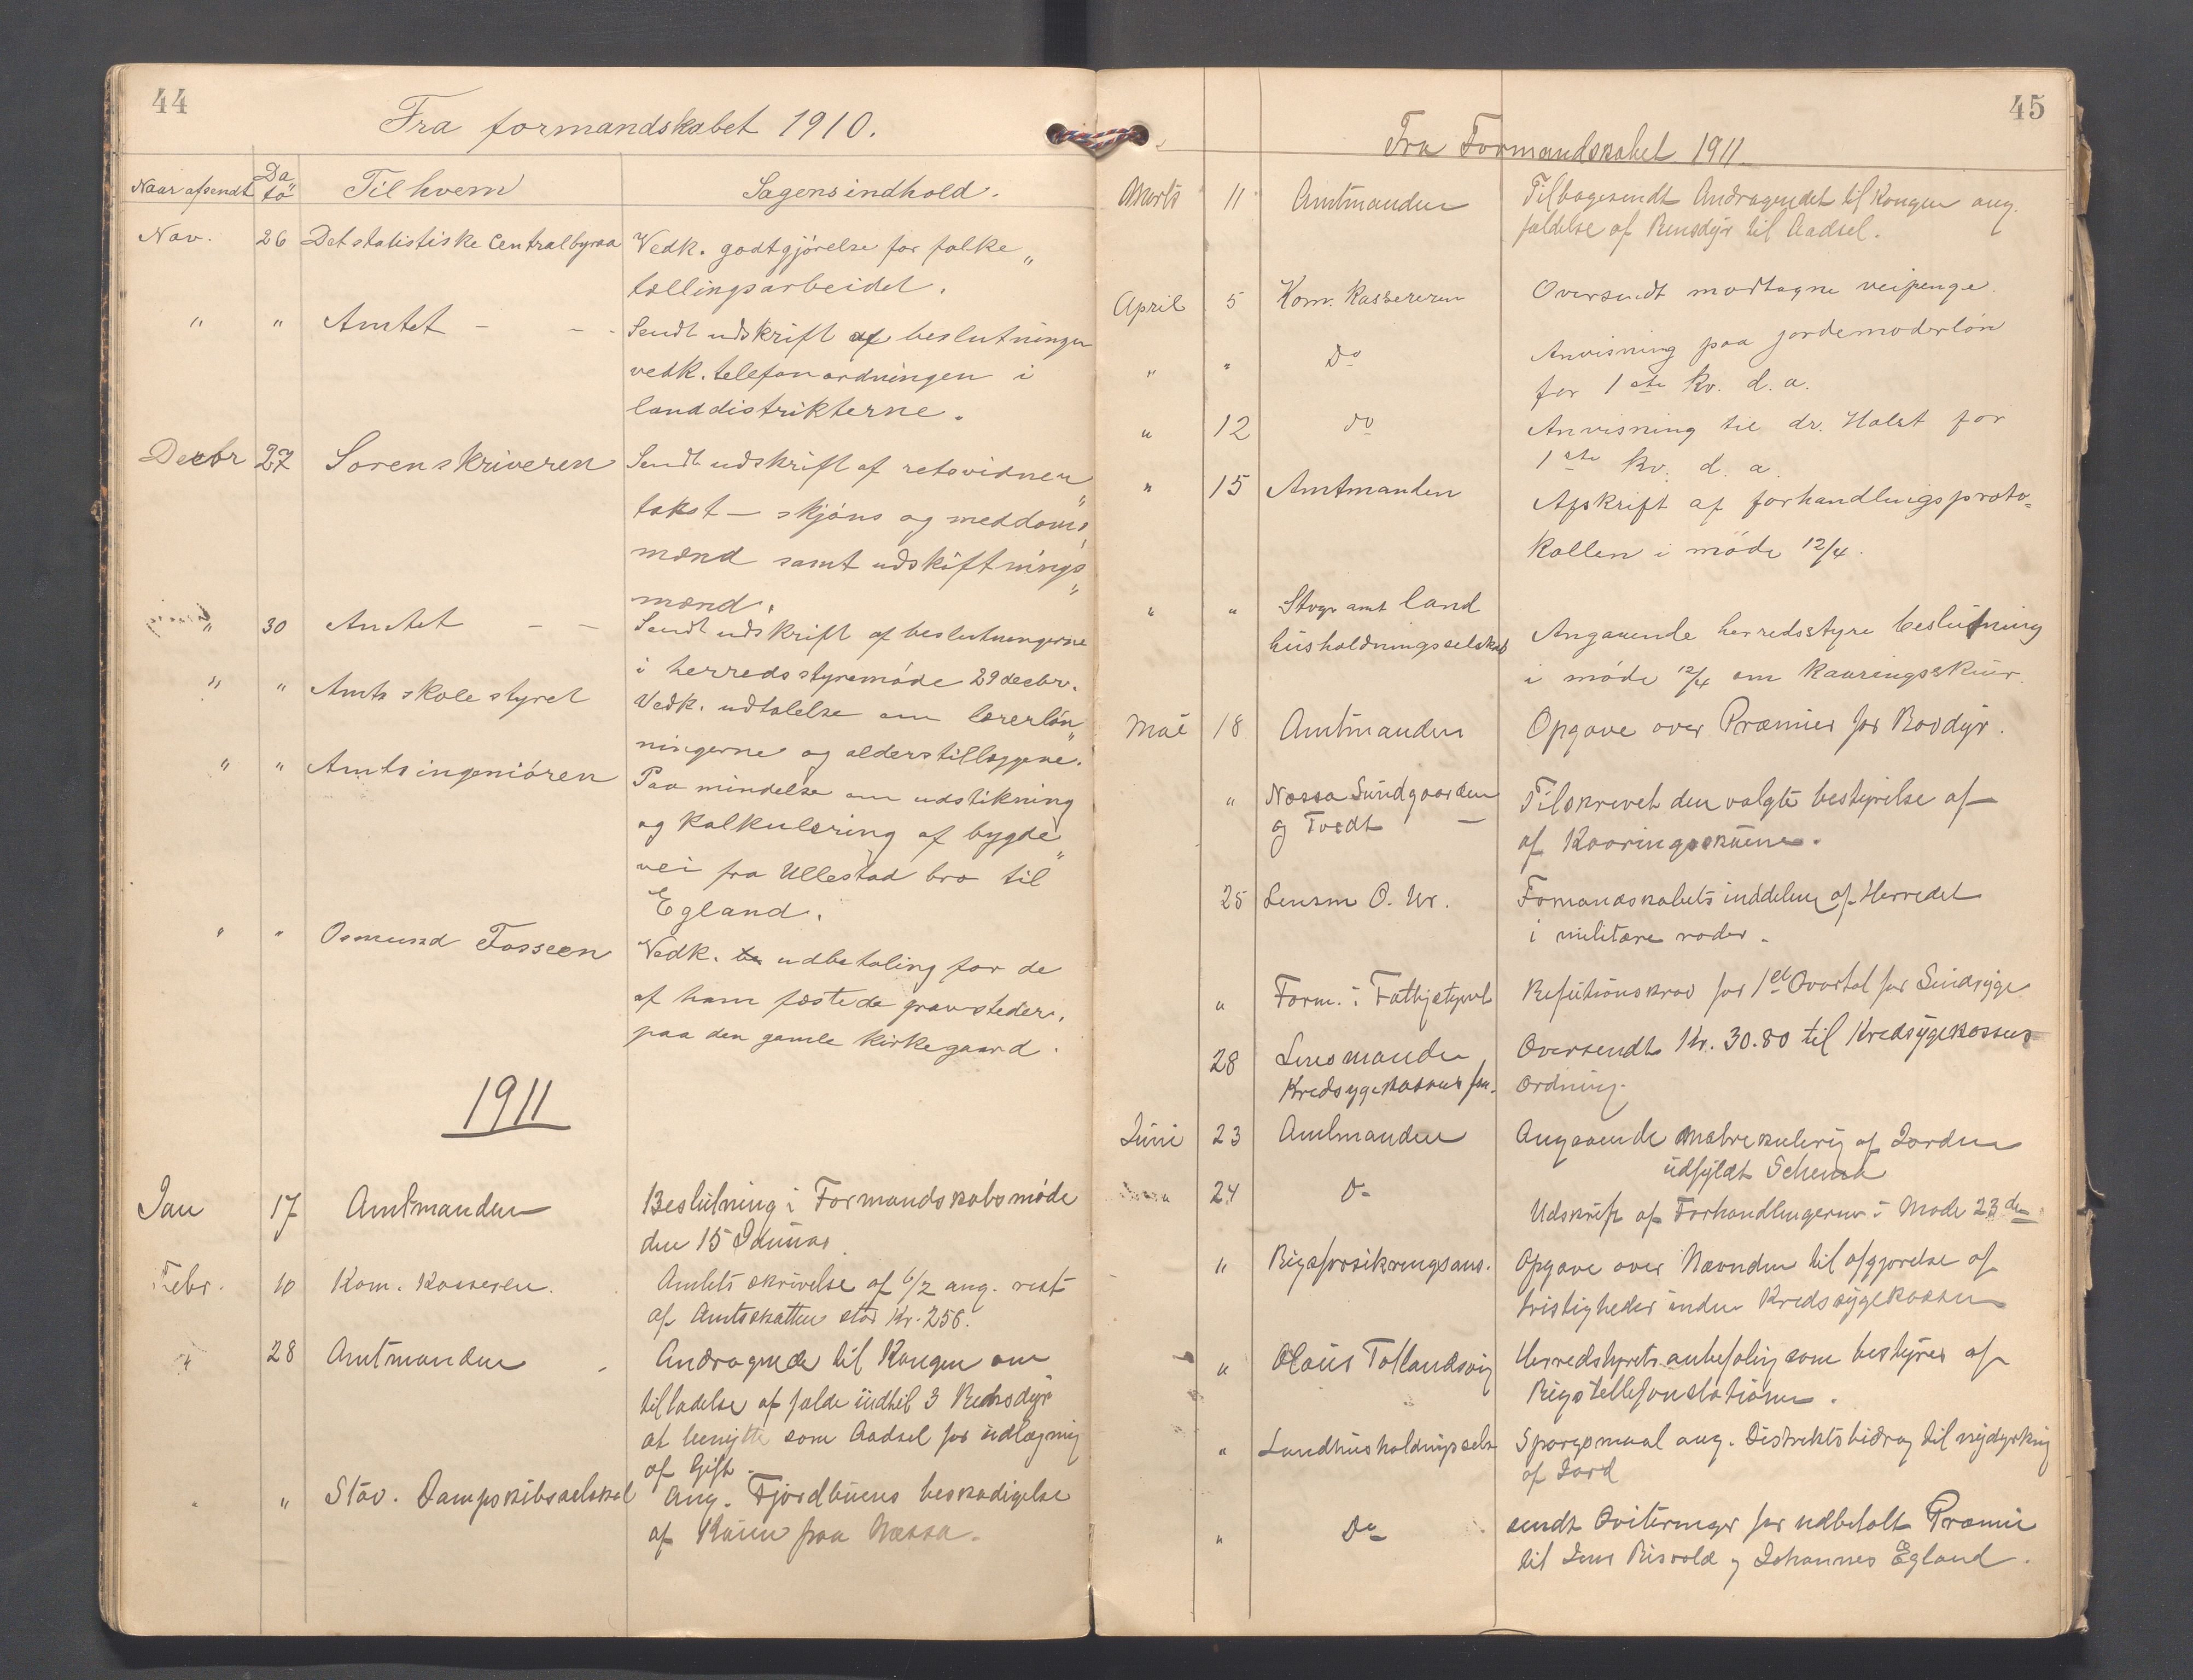 44
Fra formandskabet 1910.
Naar afsendt Dato Til hvem Sagens indhold.
Nov. 26 Det statistiske Centralbyraa Vedk. godtgjörelse for folke„
tællingsarbeidet.
" " Amtet - - Sendt udskrift af beslutninger
vedk. telefonordningen i
landdistrikterne.
Decbr 27 Sorenskriveren Sendt udskrift af retsvidner„
takst - skjöns og meddoms„
mænd samt udskiftnings„
mænd.
" 30 Amtet - - Sendt udskrift af beslutningerne
i herredsstyremöde 29 decbr.
" " Amts skolestyret Vedk. udtalelse om lærerlön„
ningerne og alderstillæggene.
" " Amtsingeniören Paamindelse om udstikning
og kalkulering af bygde„
vei fra Ullestad bro til
Egland.
" " Osmund Fosseen Vedk. udbetaling for de
af ham fæstede gravsteder,
paa den gamle kirkegaard.
1911
Jan 17 Amtmanden Beslutning i Formandskabsmöde
den 15 Januar.
Febr. 10 Kom. Kasseren. Amtets skrivelse af 6/2 ang. rest
af Amtsskatten stor Kr. 256.
" 28 Amtmanden - Andragende til Kongen om
tilladelse af fælde indtil 3 Rensdyr
at benytte som Aadsel for udlægning
af Gift.
" " Stav. Dampskibsselskab Ang. Fjordbuens beskadigelse
af Kaien paa Næssa.
45
Fra Formandskabet 1911
Marts 11 Amtmanden Tilbagesendt Andragendet til Kongen ang.
fældelse af Rensdyr til Aadsel.
April 5 Kom. Kassereren Oversendt modtagne veipenge.
" " Do Anvisning paa jordemoderlön
for 1ste kv. d. a.
" 12 do Anvisning til dr. Holst for
1ste kv. d. a.
" 15 Amtmanden Afskrift af forhandlingsproto-
kollen i möde 12/4.
" " Stvgr amt land
husholdningsselskab Angaaende herredsstyre beslutning
i möde 12/4 om kaaringsskuer.
Mai 18 Amtmanden Opgave over Præmier for Rovdyr.
" Næssa Sundgaarden Tilskrevet den valgte bestyrelse af
og Tvedt - af Kaaringsskuene.
25 Lensm O. Ur. Fomandskabets inddeling af Herredet
i militære roder.
" Form. i Fattigstyret Refutionskrav for 1et Qvartal for Sindsyge
28 Lensmanden Oversendt Kr. 30.80 til Kredsygekassens
Kredsygekassens fm. ordning.
Juni 23 Amtmanden Angaaende Matrekulering af Jorden
udfyldt Schema
24 Do Udskrift af Forhandlingerne i Möde 23de
" Rigsforsikringsans. Opgave over Nævnden til afgjörelse af
tvistigheder inden Kredssygekassen
" Olaus Tøtlandsvig Herredstyrets anbefaling som bestyrer af
Rigstellefonstationen.
" Landhusholdningsselsk Spørgsmaal ang. Distriktsbidrag til nydyrkning
af Jord
" Do sendt Qviteringer for udbetalt Præmie
til Jens Risvold og Johannes Egland.